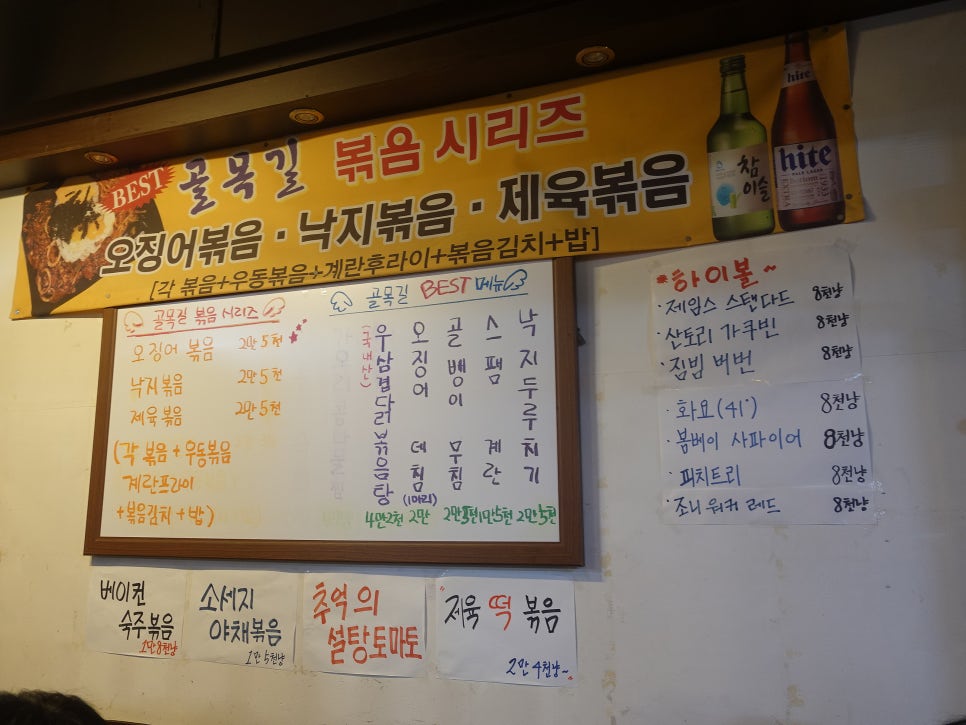 BEST
골목길 볶음 시리즈
오징어볶음 · 낙지볶음 · 제육볶음
[각 볶음+우동볶음+계란후라이+볶음김치+밥]
참
이슬
hite
hite
PALE LAGER
EXTRA
1933
골목길 볶음 시리즈
오징어 볶음 2만 5천
낙지볶음 2만 5천
제육볶음 2만 5천
(각 볶음 + 우동볶음
계란프라이
+볶음김치 + 밥)
골목길 BEST 메뉴
(국내산) 우삼겹닭볶음탕 4만2천
오징어 데침 (1마리) 2만
골뱅이 무침
스팸 계란 1만5천
낙지두루치기 2만5천
*하이볼~
·제임스 스탠다드 8천냥
·산토리 가쿠빈 8천냥
·짐빔 버번 8천냥
·화요(41°) 8천냥
·봄베이 사파이어 8천냥
·피치트리 8천냥
·조니 워커 레드 8천냥
베이컨
숙주볶음
1만8천냥
소세지
야채볶음
1만5천냥
추억의
설탕토마토
"제육 떡 볶음
2만4천냥~